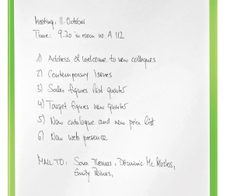 Meeting: 11. October
Time: 9.20 in room no. A 112
1) Address of welcome to new collegues
2) Contemporary Issues
3) Sales figures last quarter
4) Target figures new quarter
5) New catalogue and new price list
6) New web presence
MAIL TO: Sara Thomas, Dominic Mc
Emily